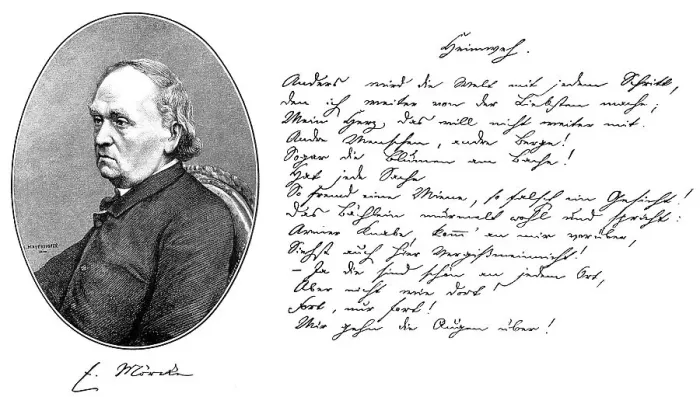 Heimweh.
Anders wird die Welt mit jedem Schritt,
den ich weiter von der Liebsten mache;
Mein Herz, das will nicht weiter mit.
Andre Menschen, andre Berge!
Sogar die Blumen am Bache!
Hat jede Sache
So fremd eine Miene, so falsch ein Gesicht!
Das Bächlein murmelt wohl und spricht:
Armer Knabe, komm' an mir vorüber,
Siehst auch hier Vergißmeinnicht!
– Ja die sind schön an jedem Ort,
Aber nicht wie dort!
Fort, nur fort!
Mir gehn die Augen über!
E. Mörike